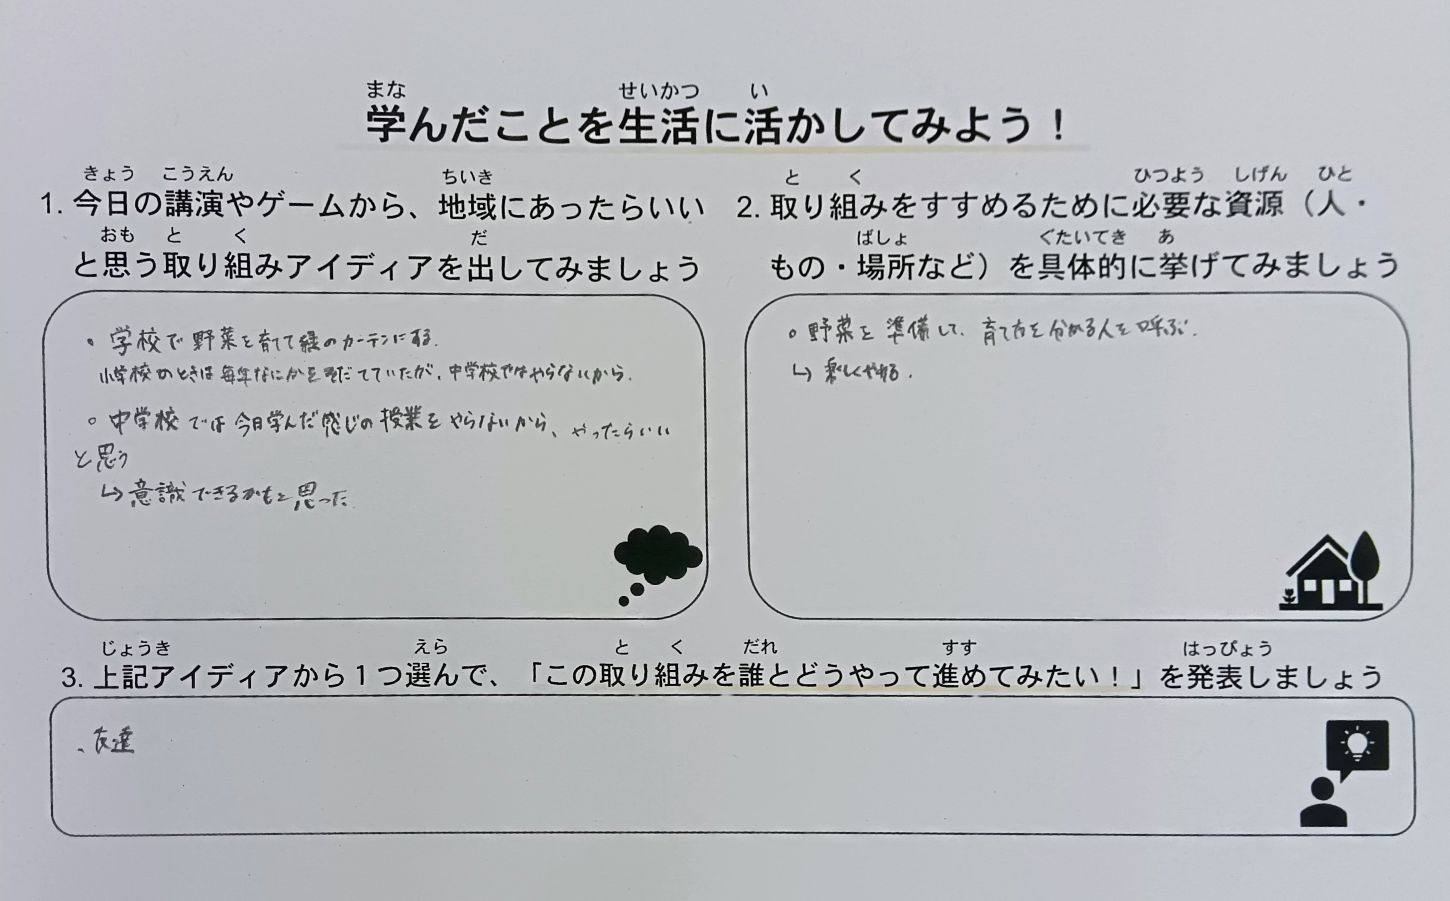 まな せいかつ い
学んだことを生活に活かしてみよう！
きょう こうえん ちいき
1. 今日の講演やゲームから、地域にあったらいい
おも と く だ
と思う取り組みアイディアを出してみましょう
。学校で野菜を育てて緑のカーテンにする.
小学校のときは毎年なにかをそだてていたが、中学校ではやらないから.
。中学校では今日学んだ感じの授業をやらないから、やったらいい
と思う
↳ 意識できるかもと思った.
と く ひつよう しげん ひと
2. 取り組みをすすめるために必要な資源（人・
ばしょ ぐたいてき あ
もの・場所など）を具体的に挙げてみましょう
。野菜を準備して、育て方を分める人を呼ぶ.
↳ 楽しくやる.
じょうき えら と く だれ すす はっぴょう
3. 上記アイディアから１つ選んで、「この取り組みを誰とどうやって進めてみたい！」を発表しましょう
、友達